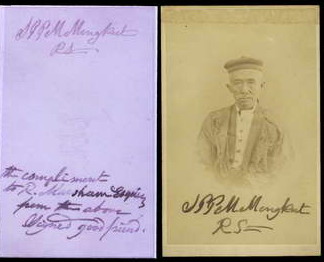 S P P M Mongkut
R S
th compliment
to R. Marsham Esquire
from the above
Signed good friend.
S P P M Mongkut
R S